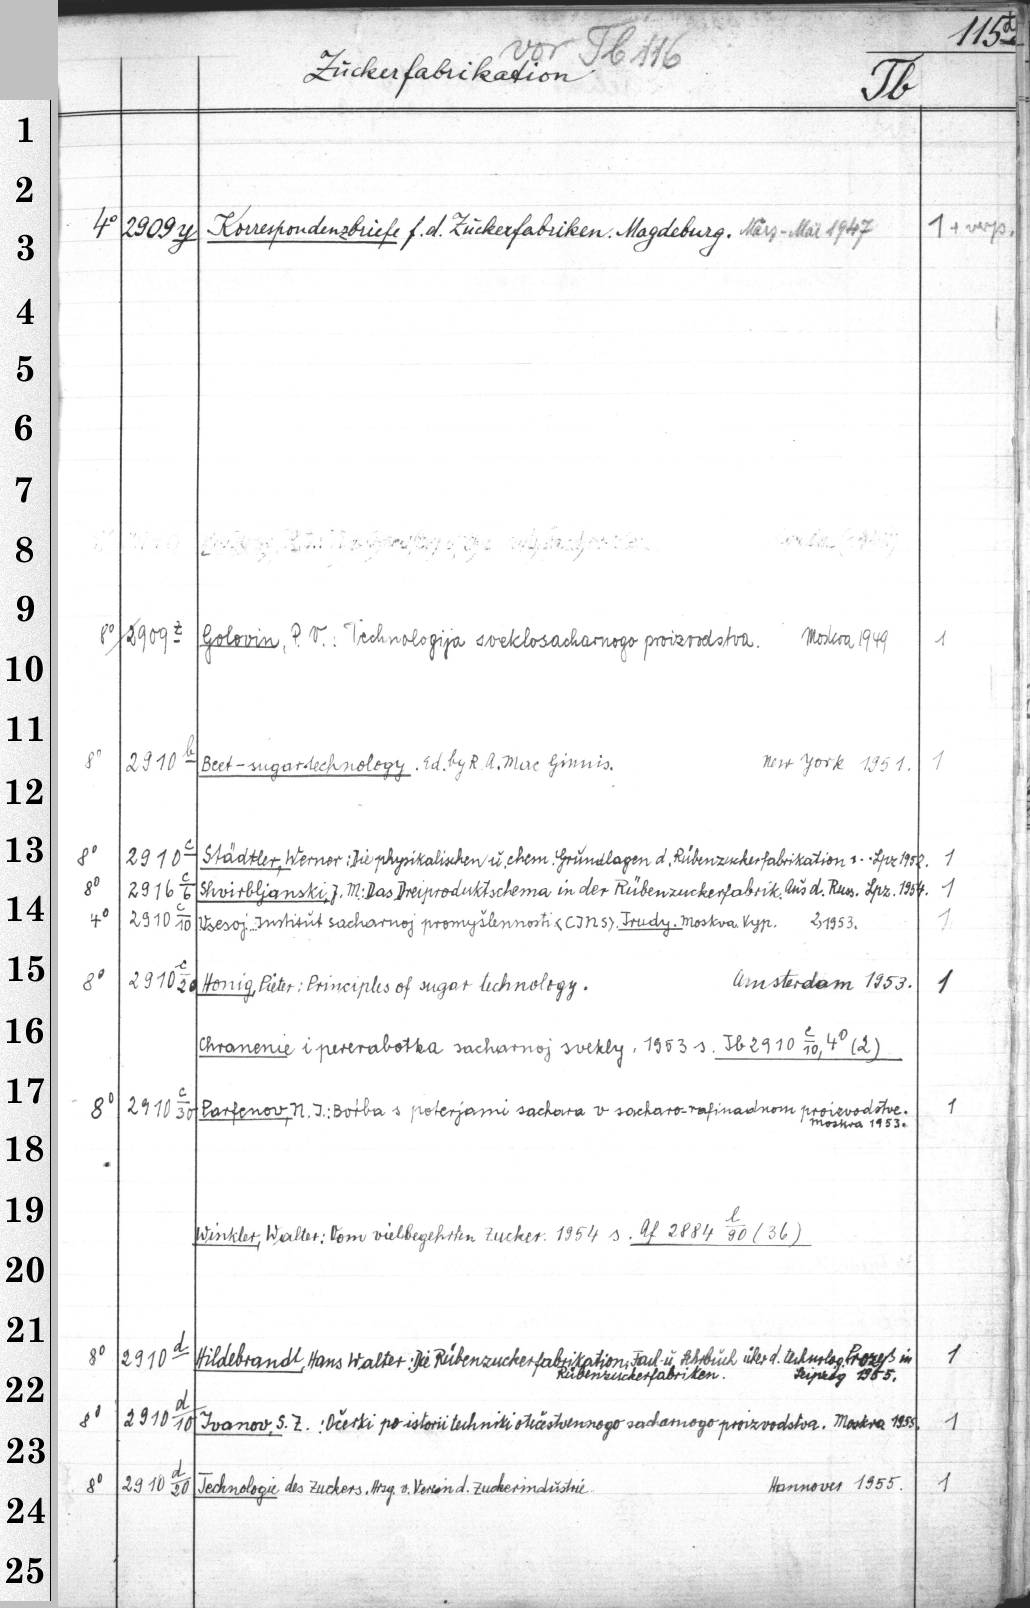 115d
vor Tb 116
Zuckerfabrikation
Tb
1
2
3
4° 2909 y Korrespondenzbriefe f. d. Zuckerfabriken. Magdeburg. März-Mai 1947 1 + verp.
4
5
6
7
8
9
8° 2909 z Golovin, P. V.: Technologija sveklosacharnogo proizvodstva. Moskva 1949 1
10
11
8° 2910 b Beet-sugar technology. Ed. by R. A. Mac Ginnis. New York 1951. 1
12
13
8° 2910 c Städtler, Werner: Die physikalischen u. chem. Grundlagen d. Rübenzuckerfabrikation Lpz 1952. 1
8° 2916 c/6 Shvirbljanski, J. M.: Das Dreiproduktschema in der Rübenzuckerfabrik. Aus d. Russ. Lpz. 1954. 1
14
4° 2910 c/10 Vsesoj. Institut sacharnoj promyšlennosti (CINS). Trudy. Moskva. Vyp. 2,1953. 1
15
8° 2910 c/20 Honig, Pieter: Principles of sugar technology. Amsterdam 1953. 1
16
Chranenie i pererabotka sacharnoj svekly. 1953 s. Tb 2910 c/10, 4° (2)
17
8° 2910 c/30 Parfenov, N. I.: Bor'ba s poterjami sachara v sacharo-rafinadnom proizvodstve. 1
Moskva 1953.
18
19
Winkler, Walter: Vom vielbegehrten Zucker. 1954 s. Af 2884 l/90 (36)
20
21
8° 2910 d Hildebrandt, Hans Walter: Die Rübenzuckerfabrikation, Fach- u. Lehrbuch über d. technolog. Prozeß in 1
Rübenzuckerfabriken. Leipzig 1955.
22
8° 2910 d/10 Ivanov, S. Z.: Očerki po istorii techniki otečestvennogo sacharnogo proizvodstva. Moskva 1955. 1
23
8° 2910 d/20 Technologie des Zuckers. Hrsg. v. Verein d. Zuckerindustrie Hannover 1955. 1
24
25